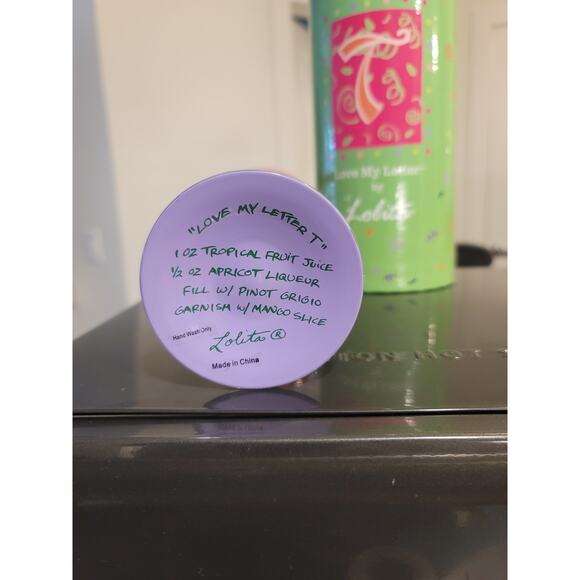 T
Love My Letter™
by
Lolita
"LOVE MY LETTER T"
1 OZ TROPICAL FRUIT JUICE
1/2 OZ APRICOT LIQUEUR
FILL W/ PINOT GRIGIO
GARNISH W/ MANGO SLICE
Hand Wash Only
Lolita ®
Made in China
HOT